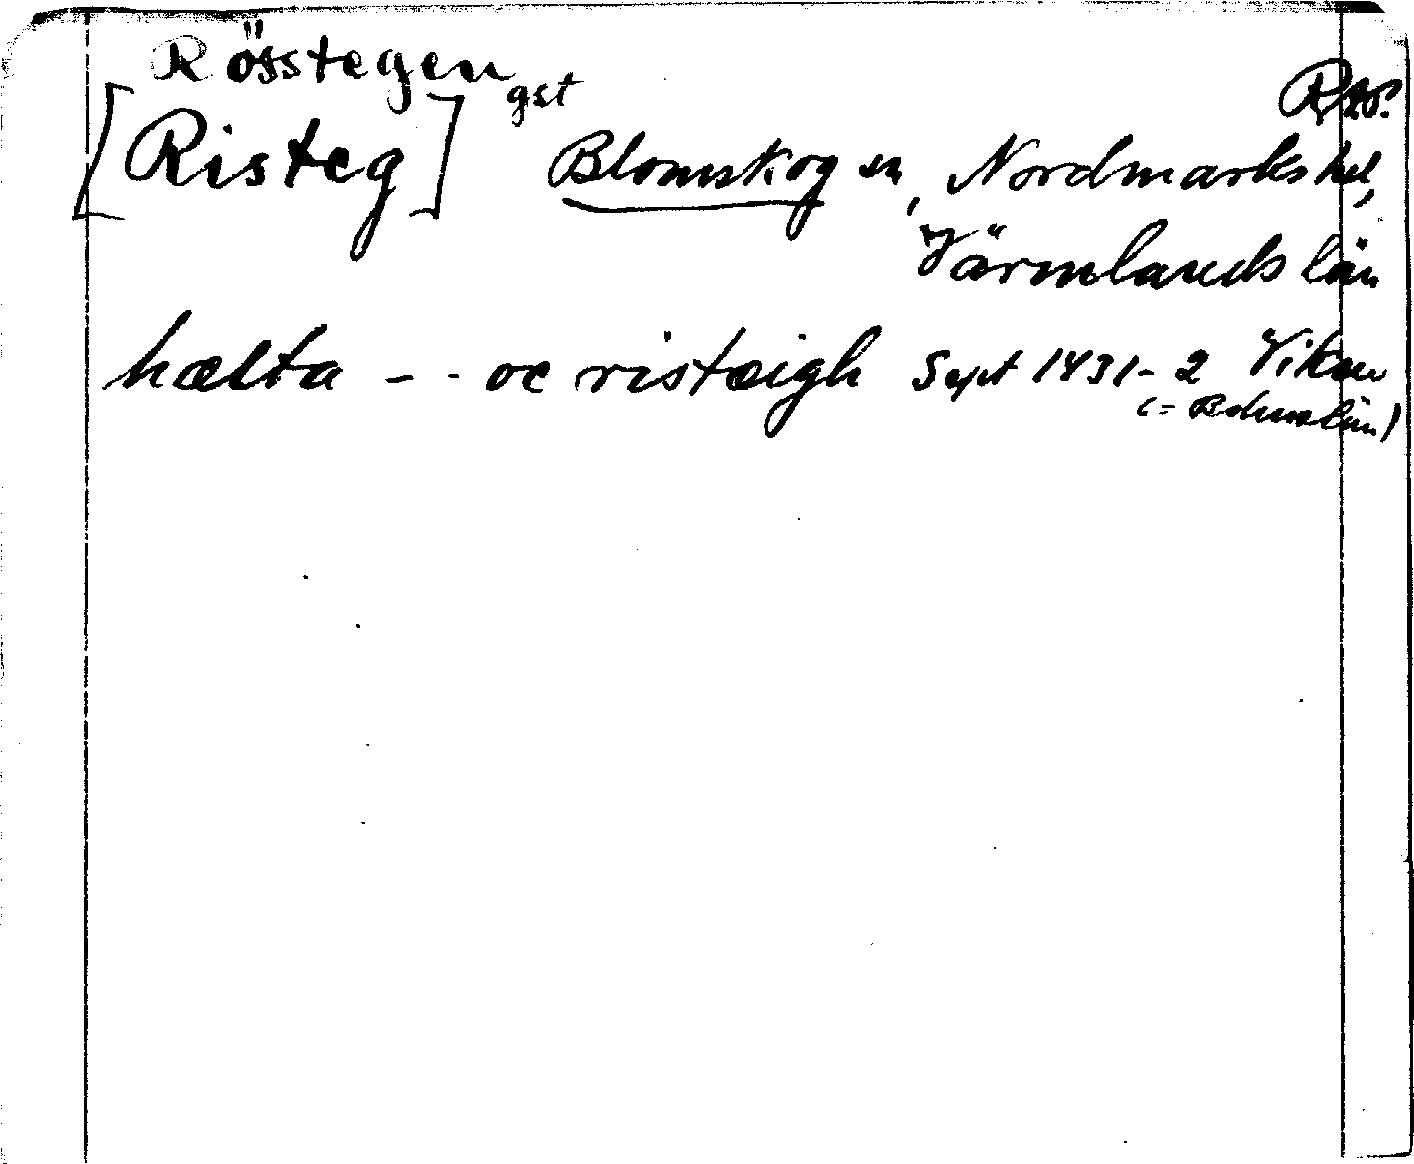 Rösstegen gst
[Risteg] Blomskog sn, Nordmarks hd,
Värmlands län
hælta - - oc ristæigh Sept 1431-2 Viken
(= Bohuslän)